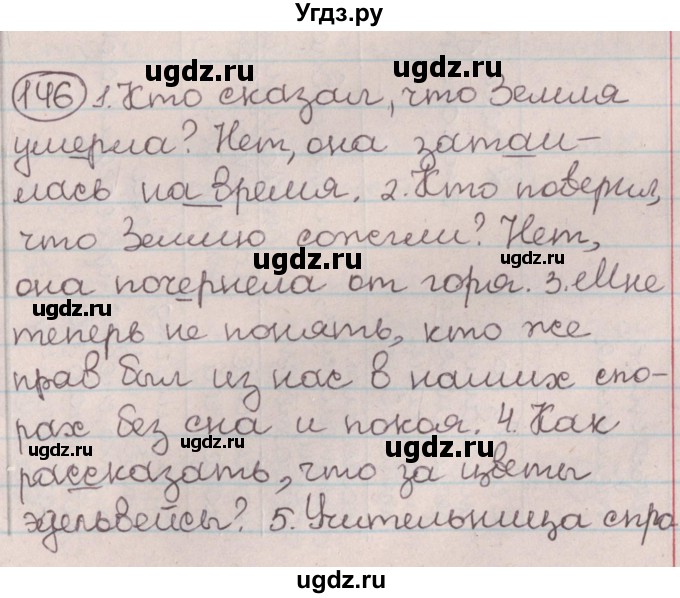 Угдз.ру
ugdz.ru
ugdz.ru
146 1. Кто сказал, что Земля
ugdz.ru
умерла? Нет, она затаи-
лась на время. 2. Кто поверил,
что Землю сожгли? Нет,
ugdz.ru
ugdz.ru
она почернела от горя. 3. Мне
ugdz.ru
теперь не понять, кто же
прав был из нас в наших спо-
рах без сна и покоя. 4. Как
ugdz.ru
ugdz.ru
ugdz.ru
рассказать, что за цветы
эдельвейсы? 5. Учительница спро
ugdz.ru
ugdz.ru